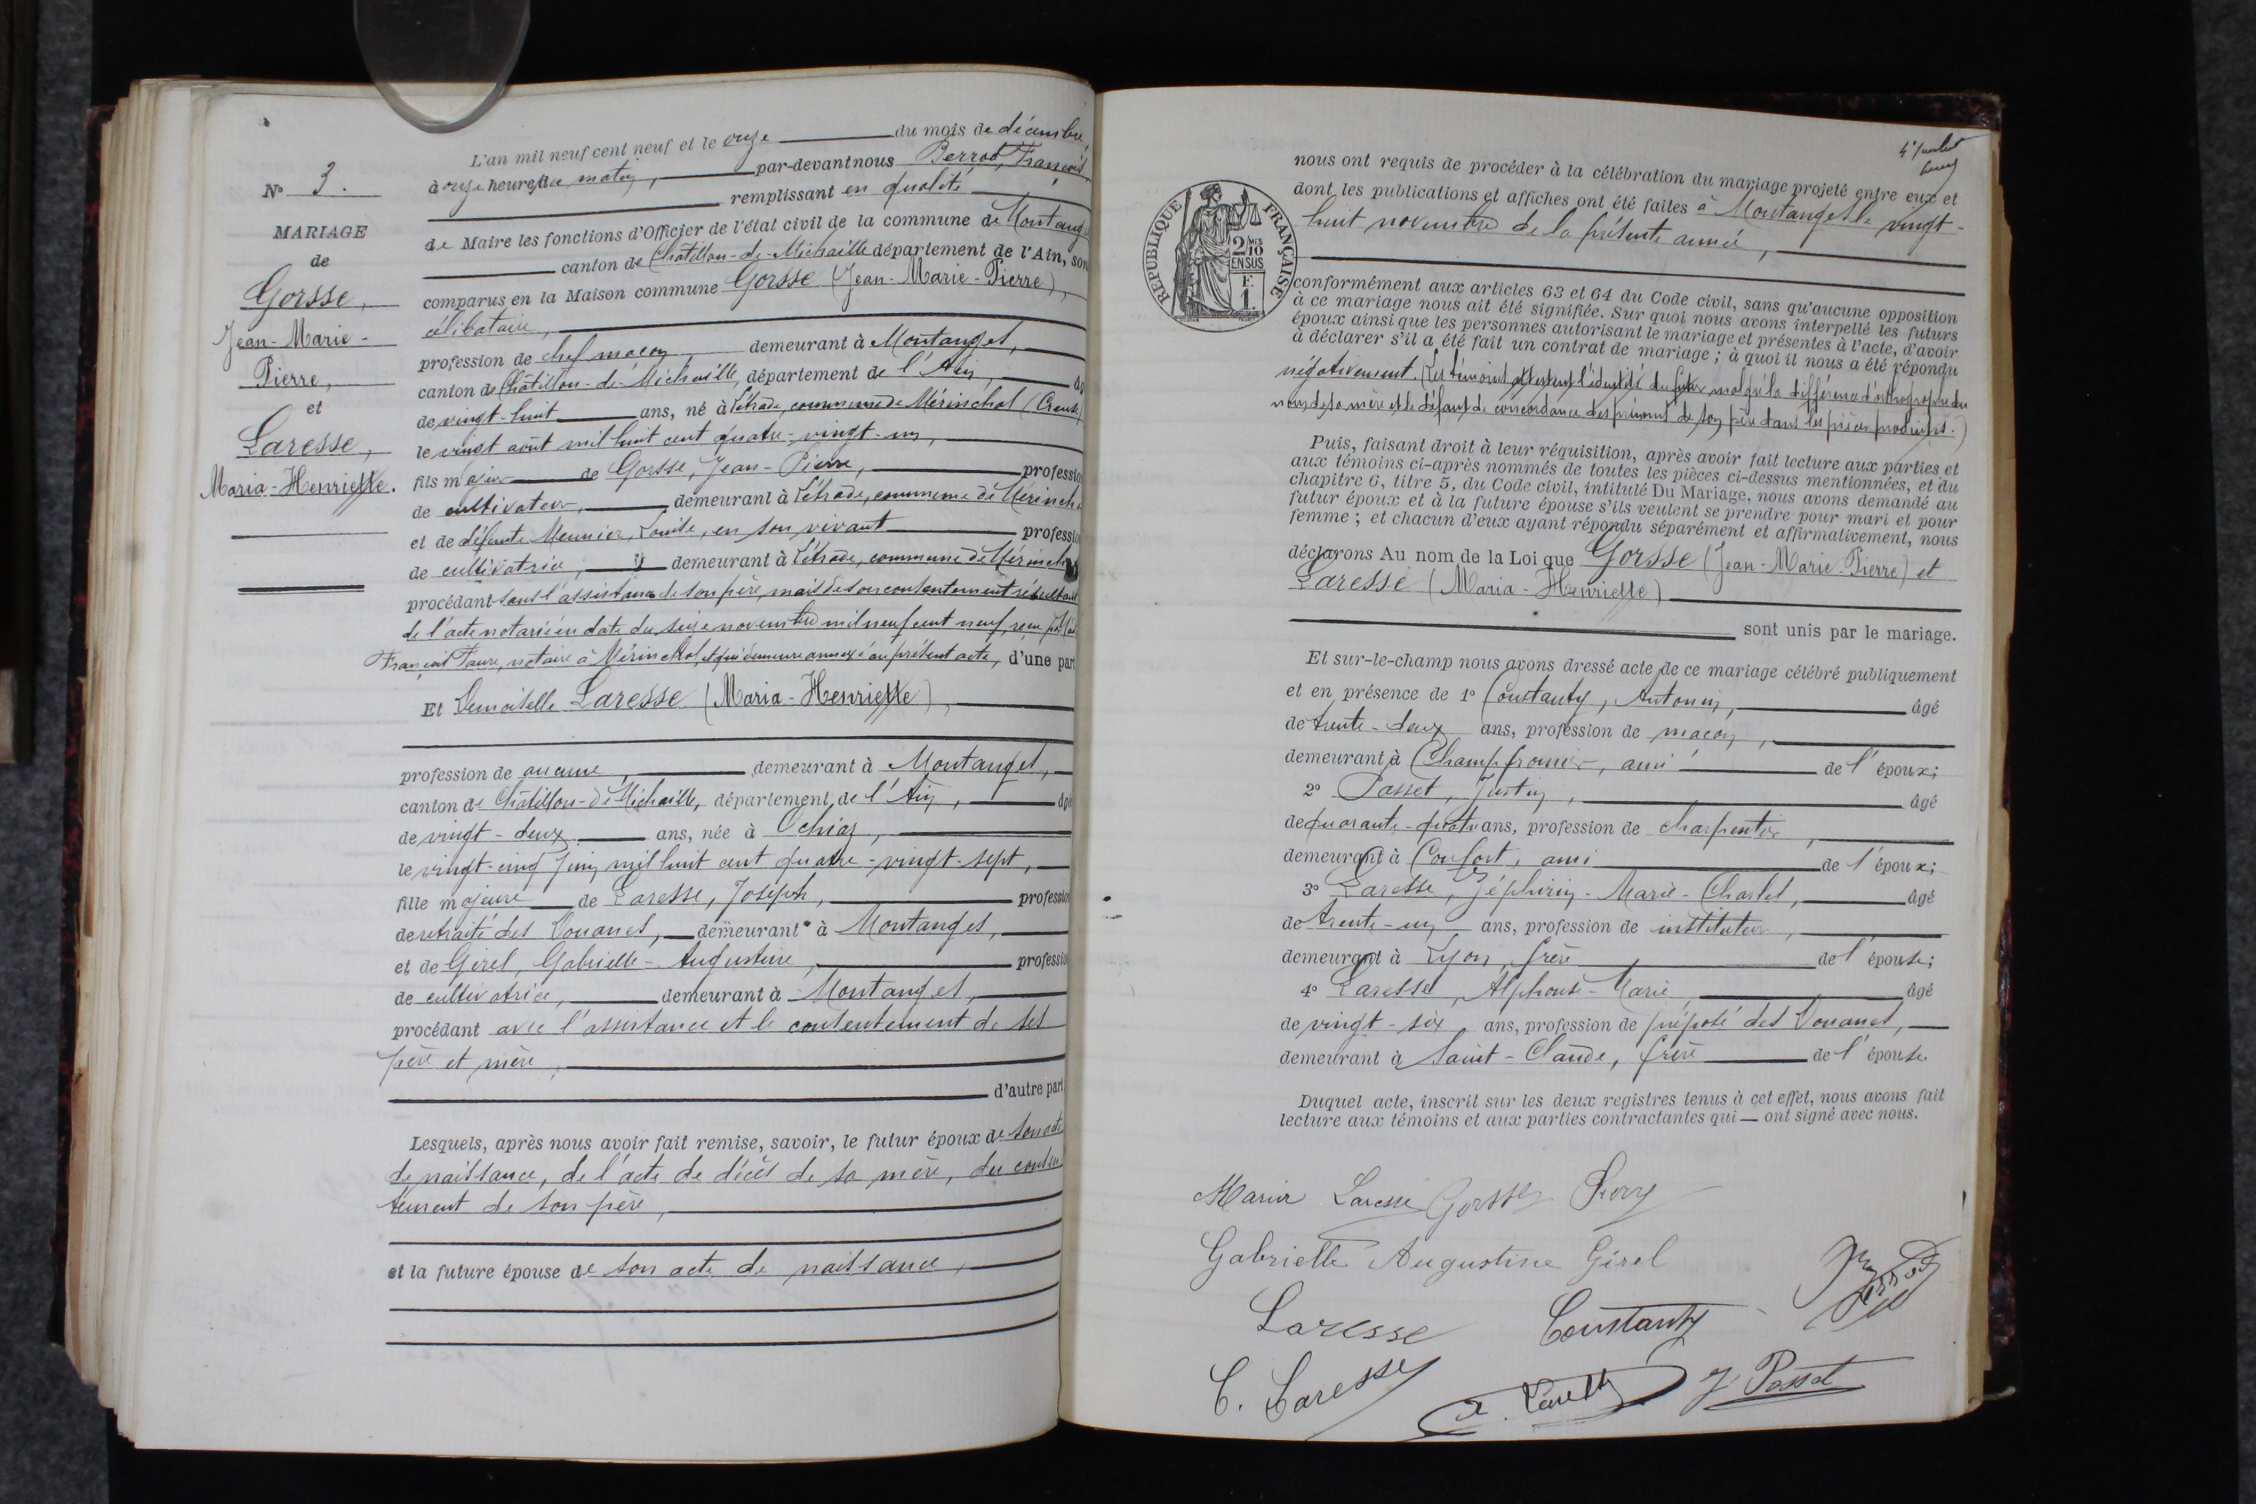 L'an mil neuf cent neuf et le onze du mois de décembre,
à onze heures du matin, par-devant nous Berrod, François,
remplissant en qualité
de Maire les fonctions d'Officier de l'état civil de la commune de Montanges
canton de Châtillon-de-Michaille département de l'Ain, son
comparus en la Maison commune Gorsse (Jean-Marie-Pierre),
célibataire,
profession de chef maçon, demeurant à Montanges,
canton de Châtillon-de-Michaille, département de l'Ain, âg
de vingt-huit ans, né à Létrade, commune de Mérinchal (Creuse)
le vingt août mil huit cent quatre-vingt-un,
fils majeur de Gorsse, Jean-Pierre, professio
de cultivateur, demeurant à Létrade, commune de Mérincha
et de défunte Meunier, Louise, en son vivant professio
de cultivatrice, demeurant à Létrade, commune de Mérinch
procédant sans l'assistance de son père, mais de son consentement résultant
de l'acte notarié en date du seize novembre mil neuf cent neuf, reçu par
François Faure, notaire à Mérinchal, et qui demeure annexé au présent acte, d'une part
Et Demoiselle Laresse (Maria-Henriette),
profession de aucune, demeurant à Montanges,
canton de Châtillon-de-Michaille, département de l'Ain, âgé
de vingt-deux ans, née à Ochiaz,
le vingt-cinq Juin mil huit cent quatre-vingt-sept,
fille majeure de Laresse, Joseph, profession
de retraité des Douanes, demeurant à Montanges,
et de Girel, Gabrielle-Augustine, professio
de cultivatrice, demeurant à Montanges,
procédant avec l'assistance et le consentement de ses
père et mère,
d'autre part
Lesquels, après nous avoir fait remise, savoir, le futur époux de son acte
de naissance, de l'acte de décès de sa mère, du consen
tement de son père,
et la future épouse de son acte de naissance,
N° 3.
MARIAGE
de
Gorsse,
Jean-Marie-
Pierre,
et
Laresse,
Maria-Henriette.
nous ont requis de procéder à la célébration du mariage projeté entre eux et
dont les publications et affiches ont été faites à Montanges le vingt-
huit novembre de la présente année,
RÉPUBLIQUE FRANÇAISE
2/10 MES
EN SUS
F.
1.
conformément aux articles 63 et 64 du Code civil, sans qu'aucune opposition
à ce mariage nous ait été signifiée. Sur quoi nous avons interpellé les futurs
époux ainsi que les personnes autorisant le mariage et présentes à l'acte, d'avoir
à déclarer s'il a été fait un contrat de mariage; à quoi il nous a été répondu
négativement. (Les témoins attestent l'identité du futur malgré la différence d'orthographe du
nom de sa mère et le défaut de concordance des prénoms de son père dans les pièces produites.)
Puis, faisant droit à leur réquisition, après avoir fait lecture aux parties et
aux témoins ci-après nommés de toutes les pièces ci-dessus mentionnées, et du
chapitre 6, titre 5, du Code civil, intitulé Du Mariage, nous avons demandé au
futur époux et à la future épouse s'ils veulent se prendre pour mari et pour
femme; et chacun d'eux ayant répondu séparément et affirmativement, nous
déclarons Au nom de la Loi que Gorsse (Jean-Marie-Pierre) et
Laresse (Maria-Henriette)
sont unis par le mariage.
Et sur-le-champ nous avons dressé acte de ce mariage célébré publiquement
et en présence de 1° Constanty, Antonin, âgé
de trente-deux ans, profession de maçon,
demeurant à Champfromier, ami de l'époux;
2° Passet, Justin, âgé
de quarante-quatre ans, profession de charpentier,
demeurant à Confort, ami de l'époux;
3° Laresse, Zéphirin-Marie-Charles, âgé
de trente-un ans, profession de instituteur,
demeurant à Lyon, frère de l'épouse;
4° Laresse, Alphonse-Marie, âgé
de vingt-six ans, profession de préposé des Douanes,
demeurant à Saint-Claude, frère de l'épouse.
Duquel acte, inscrit sur les deux registres tenus à cet effet, nous avons fait
lecture aux témoins et aux parties contractantes qui — ont signé avec nous.
Maria Laresse Gorsse
Gabrielle Augustine Girel
Laresse Constanty
C. Laresse J. Passet